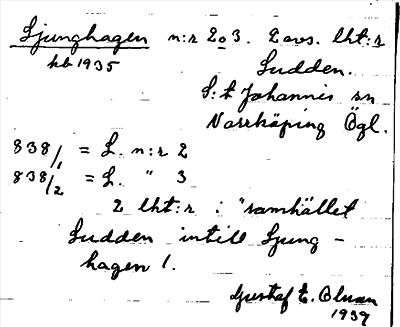 Ljunghagen n:r 2 o 3. 2 avs. lht:r
kb 1935
Sudden.
S:t Johannis sn
Norrköping Ögl.
838/1 = L. n:r 2
838/2 = L. " 3
2 lht:r i "samhället
Sudden intill Ljung-
hagen 1.
Gustaf E. Olsson
1939